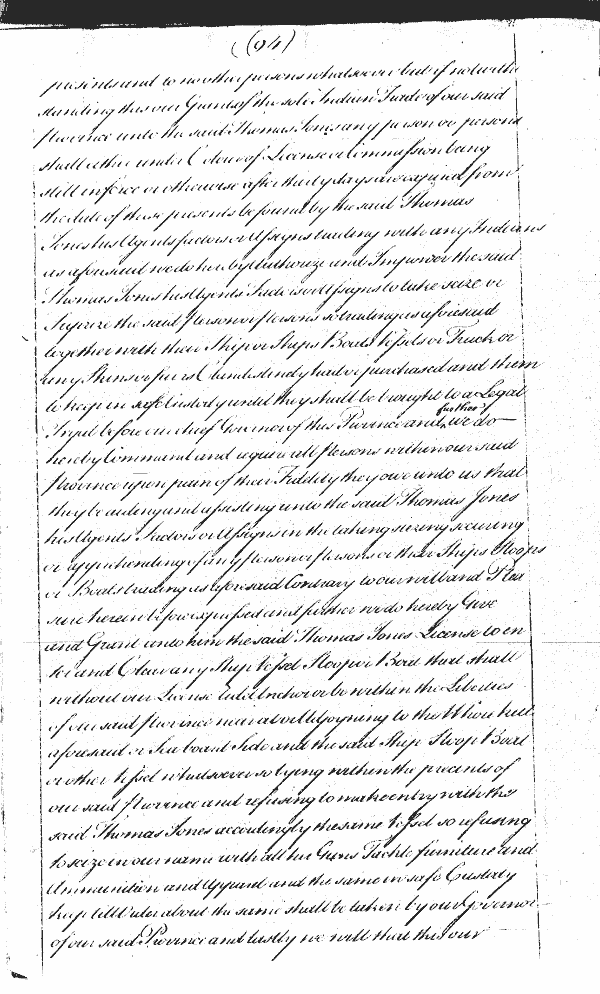 (94)
presents and to no other persons whatsoever but if notwith
standing this our Grant of the sole Indian Trade of our said
Province unto the said Thomas Jones any person or persons
shall either under Colour of License or Commission being
still in force or otherwise after thirty days are expired from
the date of these presents be found by the said Thomas
Jones his Agents factors or Assigns trading with any Indians
as aforesaid we do hereby Authorize and Impower the said
Thomas Jones his Agents Factors or Assigns to take seize or
Surprize the said Person or Persons so trading as aforesaid
together with their Ship or Ships Boats Vessels or Truck or
any Skins or furrs Clandestinely had or purchased and them
to keep in safe Custody until they shall be brought to a Legal
Tryal before our chief Governor of this Province and further we do
hereby Command and require all Persons within our said
Province upon pain of their Fidelity they owe unto us that
they be aiding and assisting unto the said Thomas Jones
his Agents Factors or Assigns in the taking seizing securing
or apprehending of any Person or Persons or their Ships Sloops
or Boats trading as aforesaid Contrary to our will and Plea
sure herein before expressed and further we do hereby Give
and Grant unto him the said Thomas Jones License to en
ter and Clear any Ship Vessel Sloop or Boat that shall
without our License Anchor or be within the Liberties
of our said Province near about Adjoyning to the Whore kill
aforesaid or Sea board Side and the said Ship Sloop Boat
or other Vessel whatsoever so lying within the precints of
our said Province and refusing to make entry with the
said Thomas Jones accordingly the same Vessel so refusing
to seize in our name with all her Guns Tackle furniture and
Ammunition and Apparel and the same in safe Custody
keep till Order about the same shall be taken by our Governor
of our said Province and lastly we will that this our